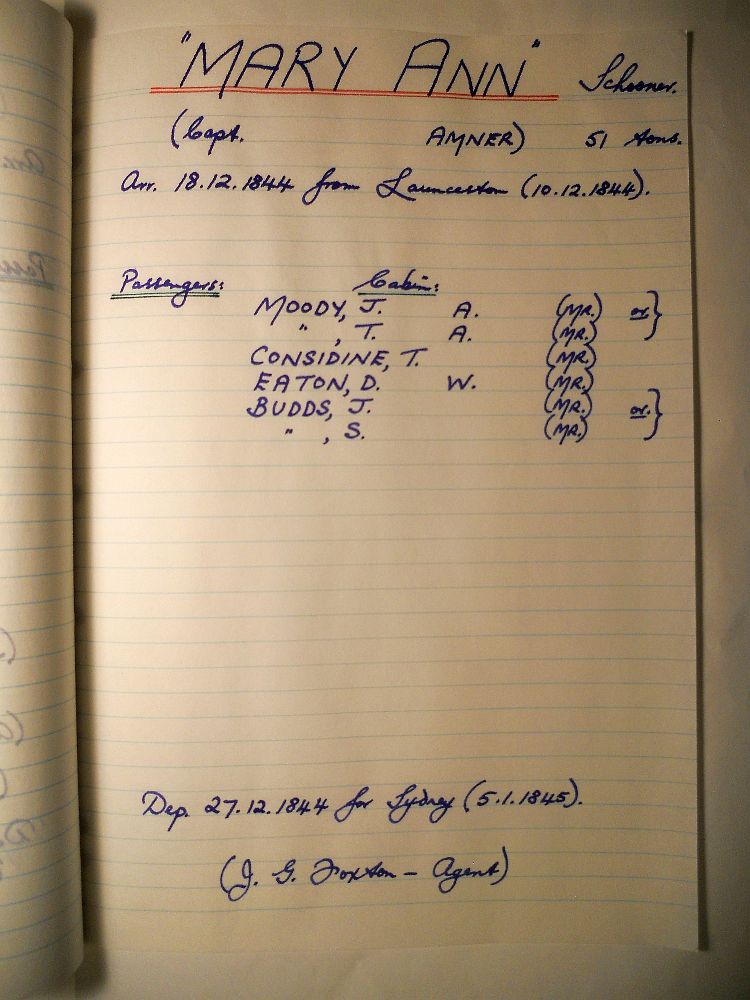 "MARY ANN" Schooner.
(Capt. AMNER) 51 tons.
Arr. 18.12.1844 from Launceston (10.12.1844).
Passengers: Cabin:
MOODY, J. A. (MR.) or }
" , T. A. (MR.)
CONSIDINE, T. (MR.)
EATON, D. W. (MR.)
BUDDS, J. (MR.) or. }
" , S. (MR.)
Dep. 27.12.1844 for Sydney (5.1.1845).
(J. G. Foxton - Agent)